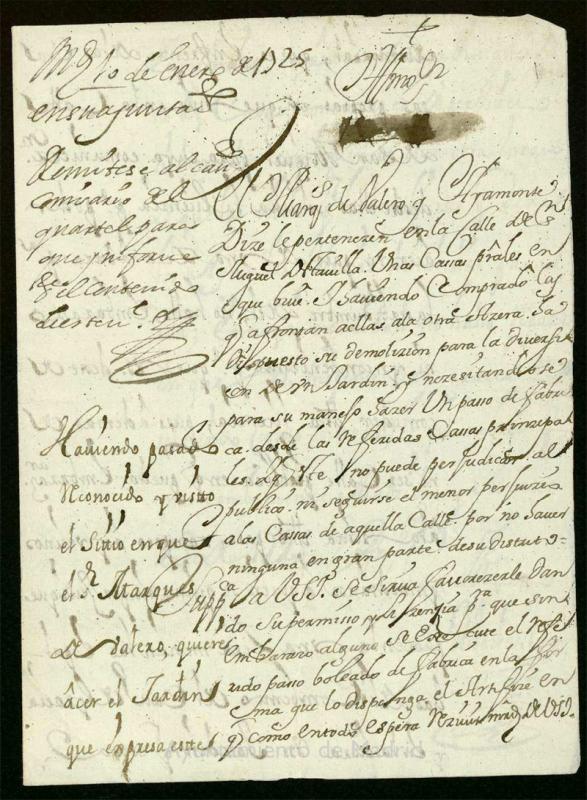 Md 10 de Enero de 1725
en su Junta
Remitese al cavº
comisario del
quartel para
que ynforme
el contenido
Illmo Sr
El Marqs de Valero y Ayamonte
Dize le pertenezen en la Calle de Sn
Miguel Una Casas prales en
que bive. I haviendo Comprado las
q afrontan a ellas a la otra Azera. ha
dispuesto su demolizion para la diversi
on de un Jardin. y nezesitandose
para su manejo hazer Un passo de fabri
ca. desde las Referidas Casas prinzipal
es. a este no puede perjudicar al
publico. ni seguirse el menor perjuizi
a las Casas de aquella Calle. por no haver
ninguna en gran parte. de su distrito.
Suppca a VSI. se sirva favorezerle dan
do su permisso y lizenzia pa que sin
embarazo alguno se execute el Refe
rido passo boleado de fabrica en la for
ma que lo disponga el Artifize en
q como en todo espera Rzivir mrd de VSI.
Haviendo pasado
Reconocido y visto
el Sitio en que
el Sr Marques
de Valero, quiere
acer el Jardin
que expresa este